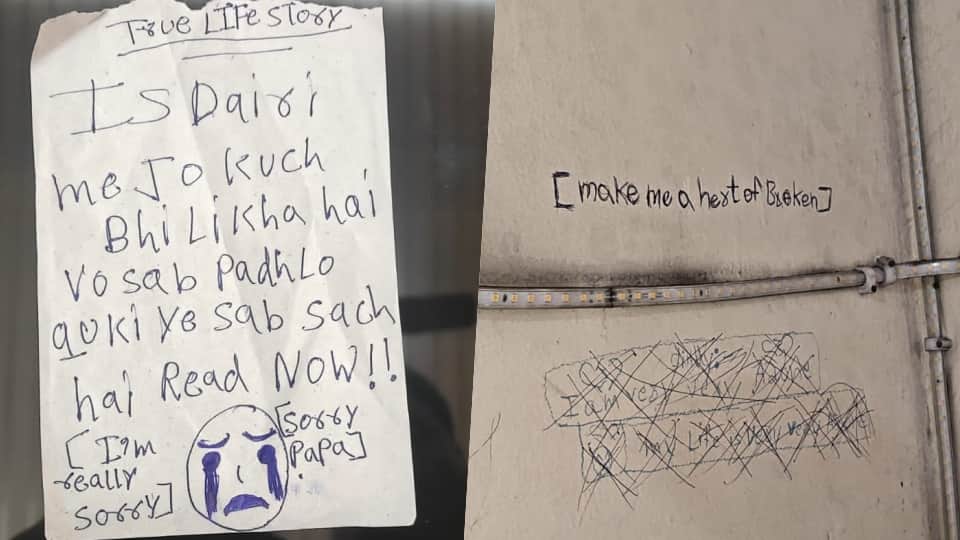 True LIFe STORY
IS Dairi
me Jo kuch
Bhi Likha hai
vo sab Padh Lo
quki ye sab sach
hai Read NOW!!
[I'm
really
sorry]
[sorry
Papa]
[make me a hert of Broken]
I am very
my Life is very very